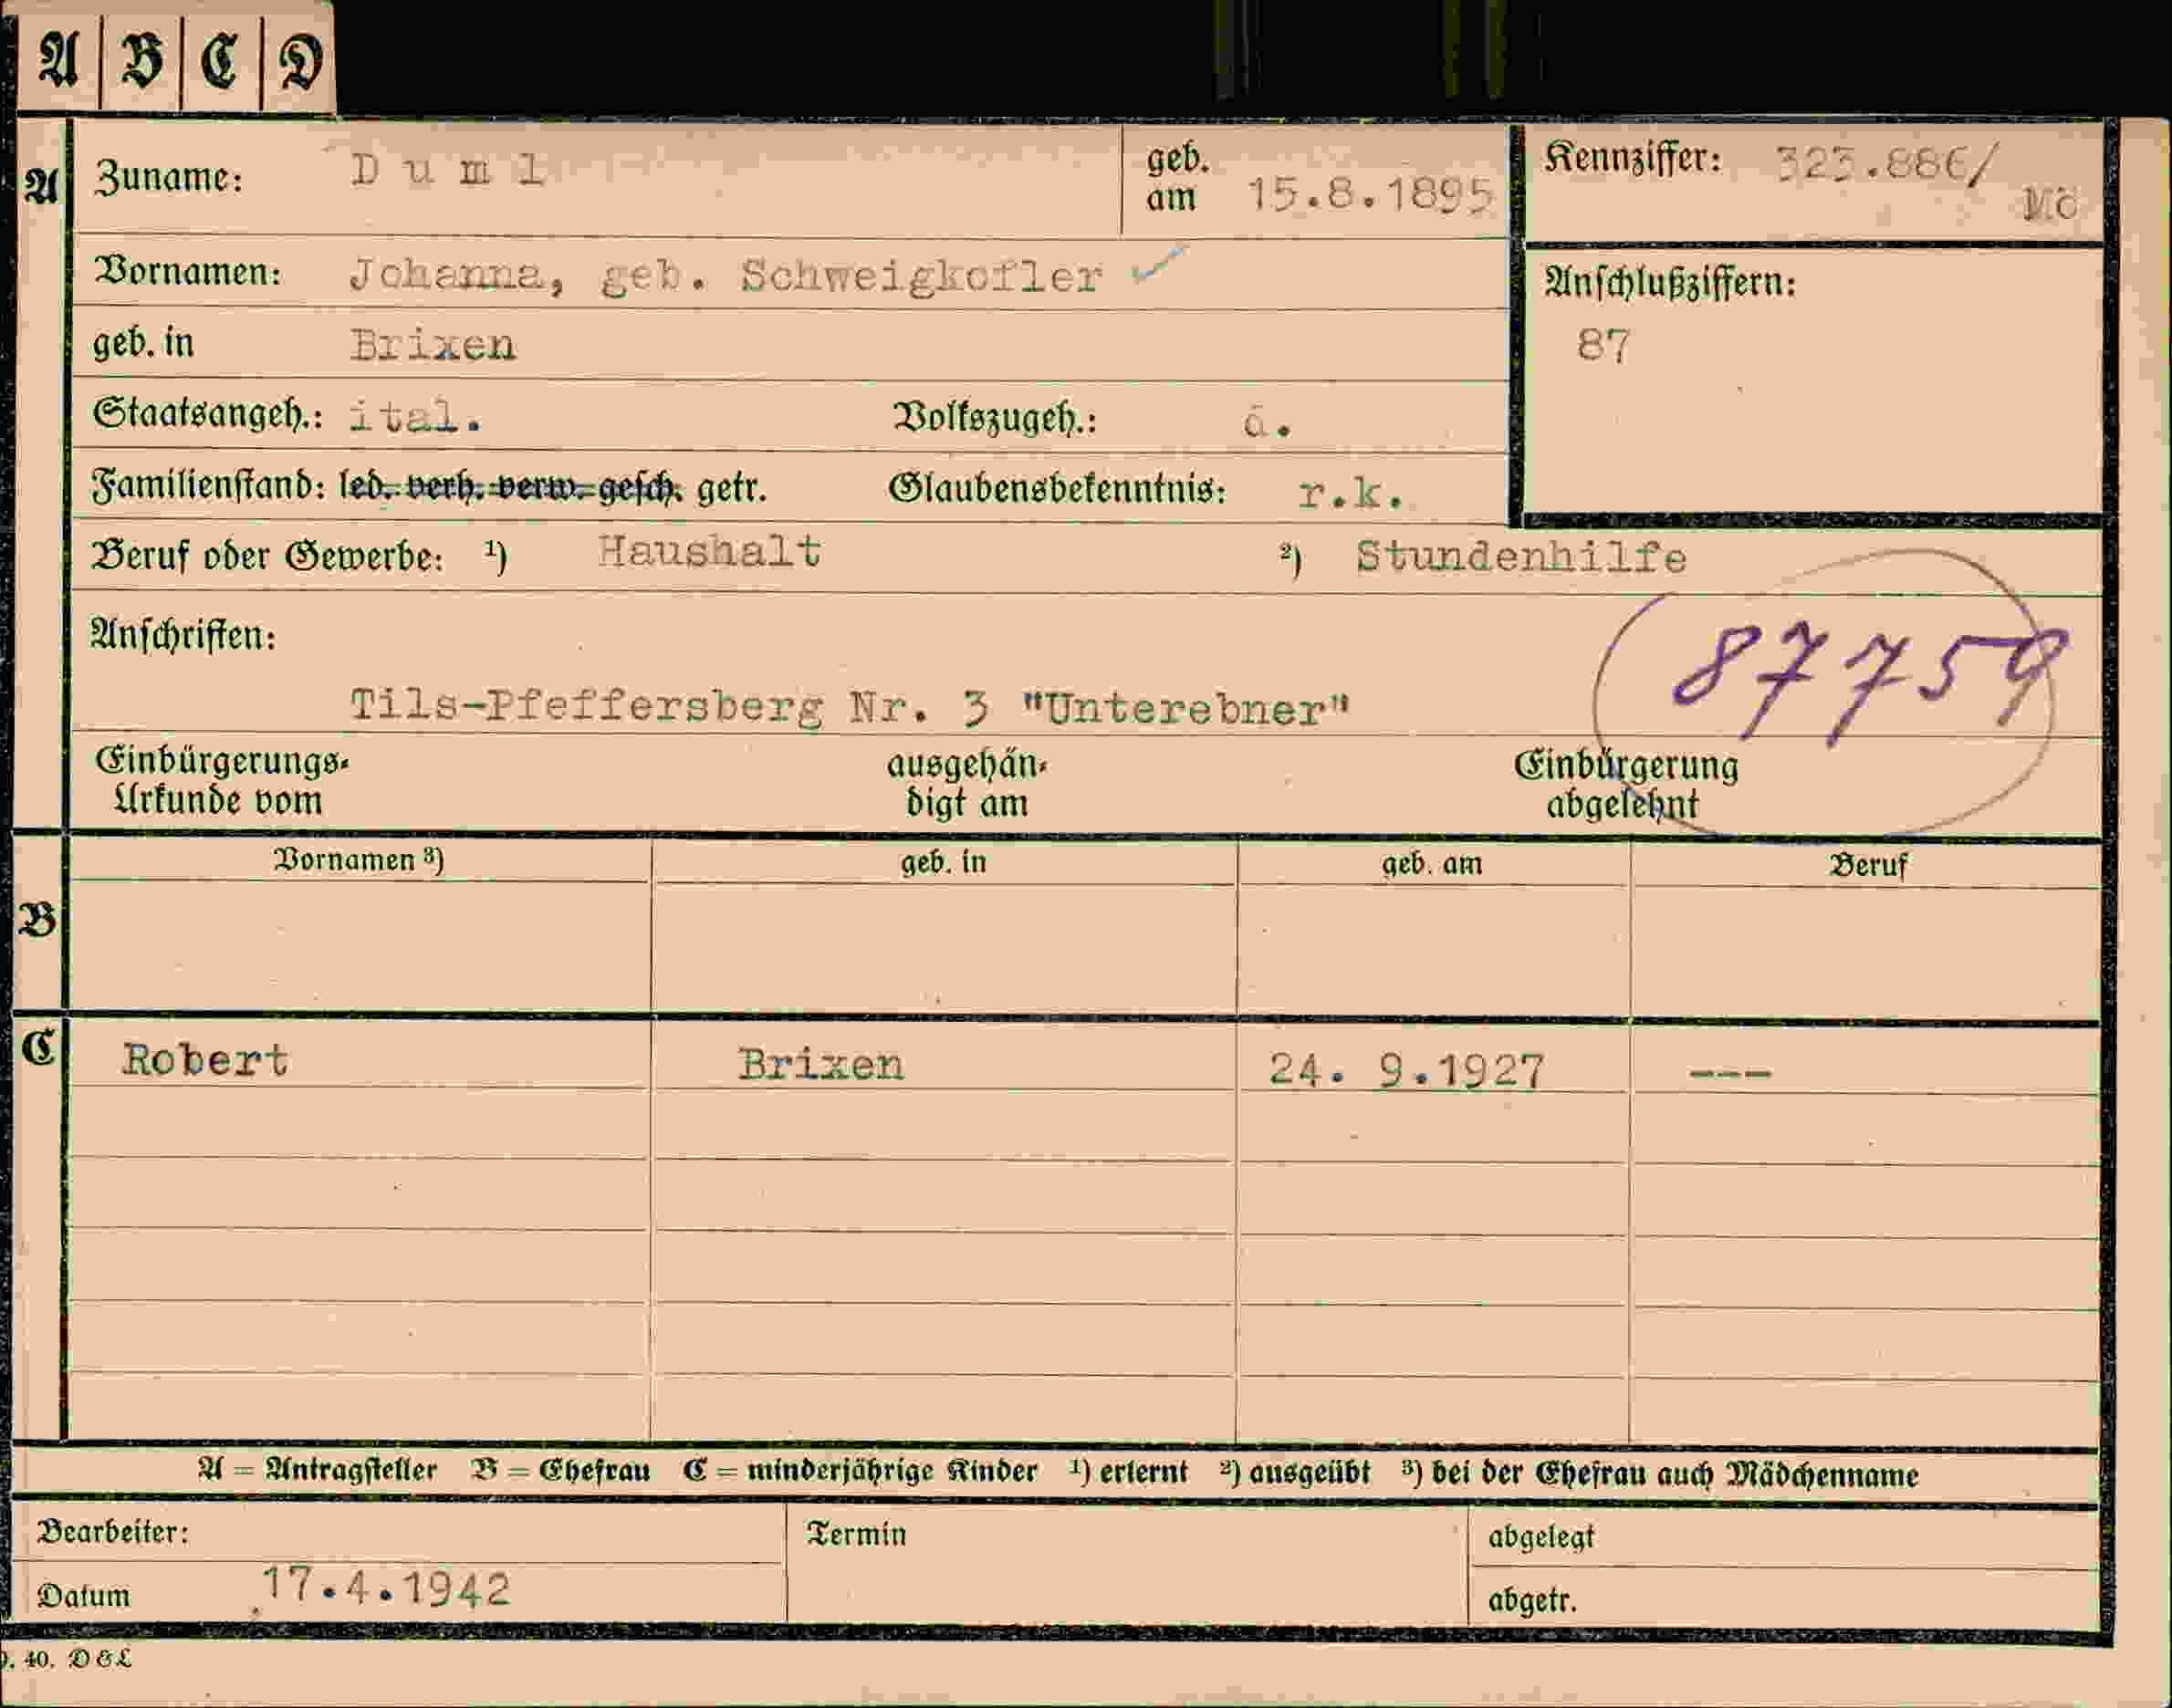 A B C D
A Zuname: D u m l geb. am 15.8.1895 Kennziffer: 323.886/ Mö
Vornamen: Johanna, geb. Schweigkofler ✓ Anschlußziffern:
geb. in Brixen 87
Staatsangeh.: ital. Volkszugeh.:
Familienstand: led. verh. verw. gesch. getr. Glaubensbekenntnis: r.k.
Beruf oder Gewerbe: ¹) Haushalt ²) Stundenhilfe
Anschriften: 87759
Tils-Pfeffersberg Nr. 3 "Unterebner"
Einbürgerungs- ausgehän- Einbürgerung
Urkunde vom digt am abgelehnt
Vornamen ³) geb. in geb. am Beruf
B
C Robert Brixen 24. 9.1927 ---
A = Antragsteller B = Ehefrau C = minderjährige Kinder ¹) erlernt ²) ausgeübt ³) bei der Ehefrau auch Mädchenname
Bearbeiter: Termin abgelegt
Datum 17.4.1942 abgetr.
40. D&L